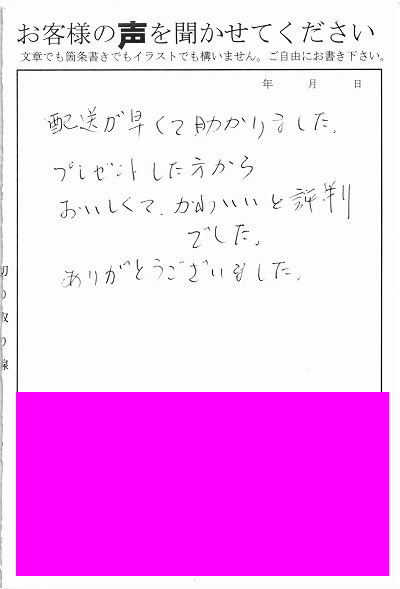 お客様の声を聞かせてください
文章でも箇条書きでもイラストでも構いません。ご自由にお書き下さい。
年 月 日
配送が早くて助かりました。
プレゼントした方から
おいしくて、かわいいと評判
でした。
ありがとうございました。
切り取り線